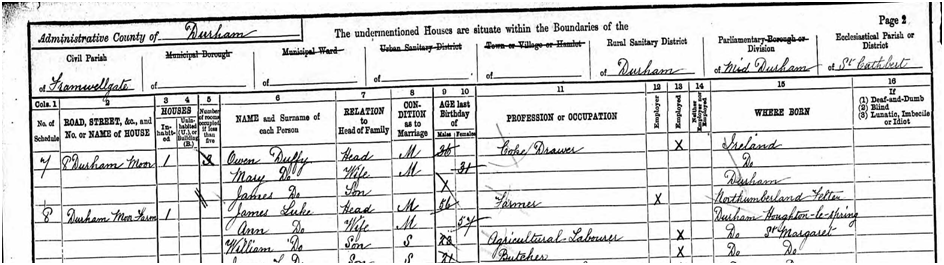 Page 2
Administrative County of Durham The undermentioned Houses are situate within the Boundaries of the
Civil Parish Municipal Borough Municipal Ward Urban Sanitary District Town or Village or Hamlet Rural Sanitary District Parliamentary Borough or Division Ecclesiastical Parish or District
of Framwellgate of of of of of Durham of Mid Durham of St Cuthbert
Cols. 1 2 3 4 5 6 7 8 9 10 11 12 13 14 15 16
No. of Schedule ROAD, STREET, &c., and No. or NAME of HOUSE HOUSES Inhabited Uninhabited (U.), or Building (B.) Number of rooms occupied if less than five NAME and Surname of each Person RELATION to Head of Family CONDITION as to Marriage AGE last Birthday of Males Females PROFESSION or OCCUPATION Employer Employed Neither WHERE BORN If (1) Deaf-and-Dumb (2) Blind (3) Lunatic, Imbecile or Idiot
7 Durham Moor 1 3 Owen Duffy Head M 36 Coke Drawer X Ireland
Mary Do Wife M 31 Do
James Do Son Durham
8 Durham Moor Farm 1 James Luke Head M 56 Farmer X Northumberland Felton
Ann Do Wife M 57 Durham Houghton-le-spring
William Do Son S 23 Agricultural-Labourer X Do St Margaret
Do Son S 21 Butcher X Do Do